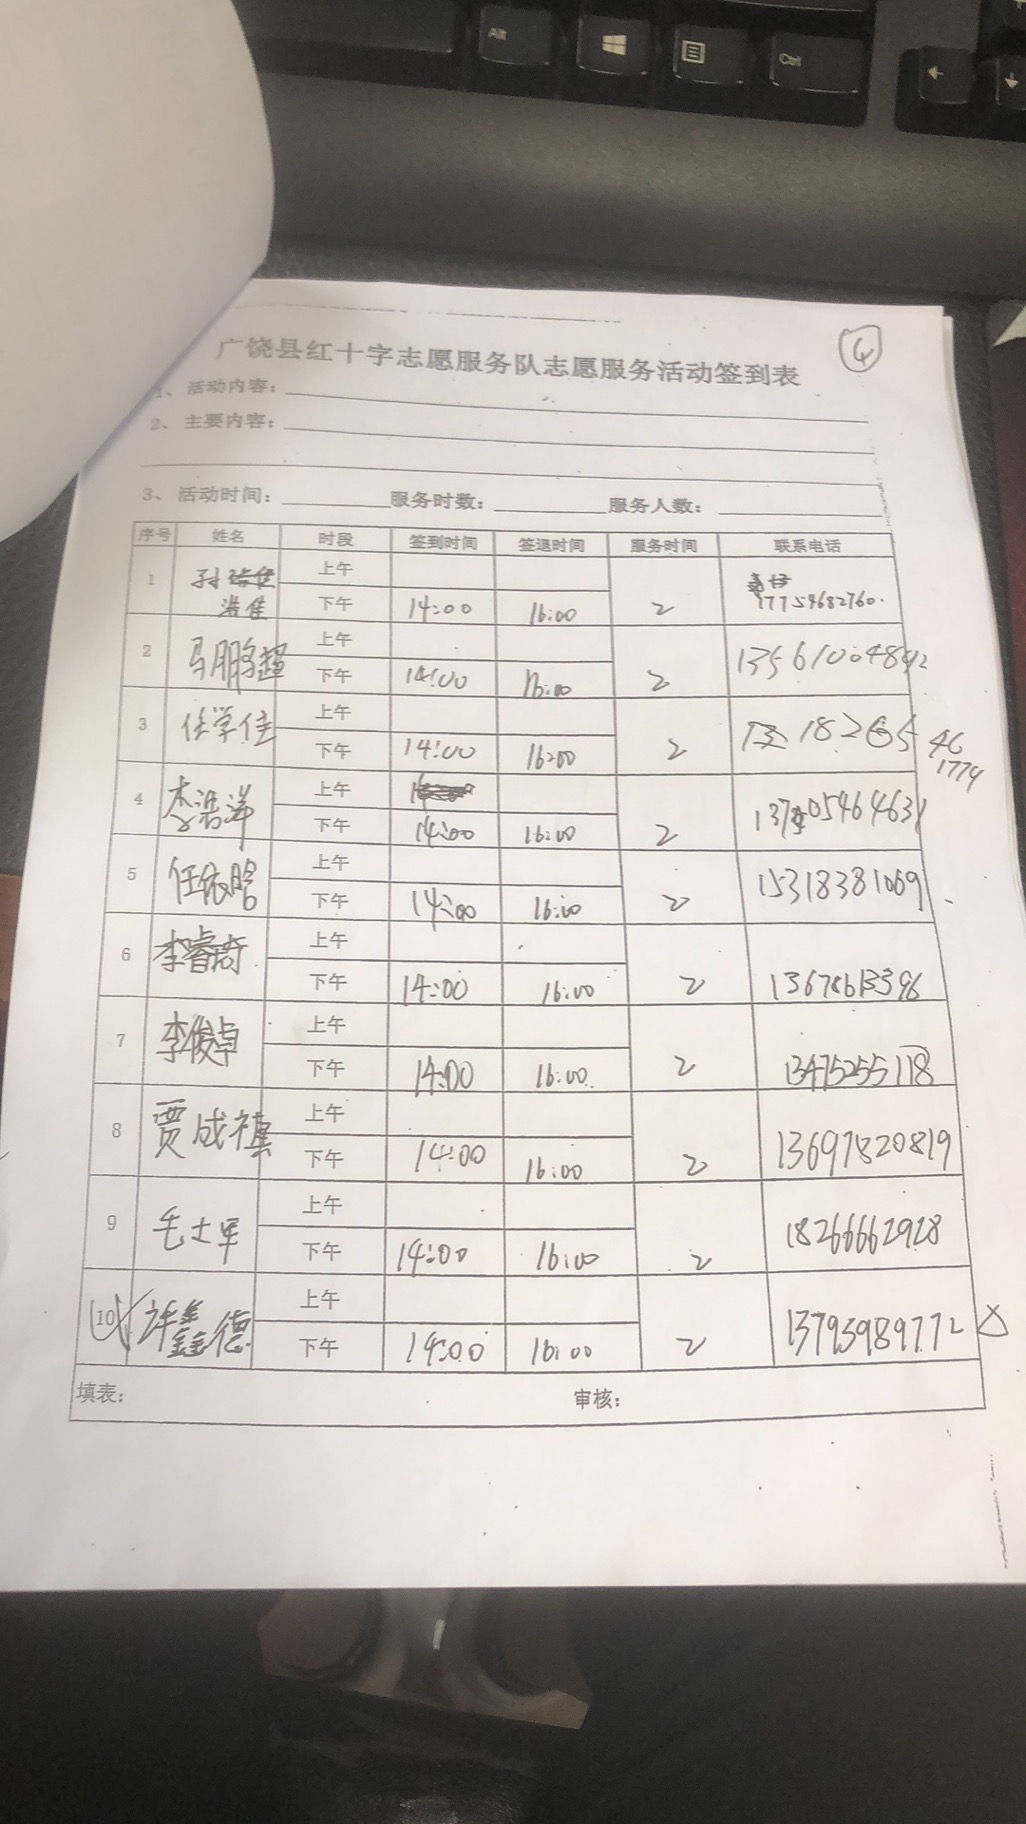 Alt
Ctrl
④
广饶县红十字志愿服务队志愿服务活动签到表
1、活动内容：
2、主要内容：
3、活动时间： 服务时数： 服务人数：
序号 姓名 时段 签到时间 签退时间 服务时间 联系电话
1 孙浩佳 上午
下午 14:00 16:00 2 17754682760
2 马鹏超 上午
下午 14:00 16:00 2 13561004892
3 任学佳 上午
下午 14:00 16:00 2 18265
46
1774
4 李浩洋 上午
下午 14:00 16:00 2
5 任依晗 上午
下午 14:00 16:00 2 15318381069
6 李睿琦 上午
下午 14:00 16:00 2
7 李俊卓 上午
下午 14:00 16:00 2 13475255118
8 贾成禛 上午
下午 14:00 16:00 2 13697820819
9 毛士军 上午
下午 14:00 16:00 2 18266662928
10 许鑫德 上午
下午 14:00 16:00 2 13793989772
填表： 审核：